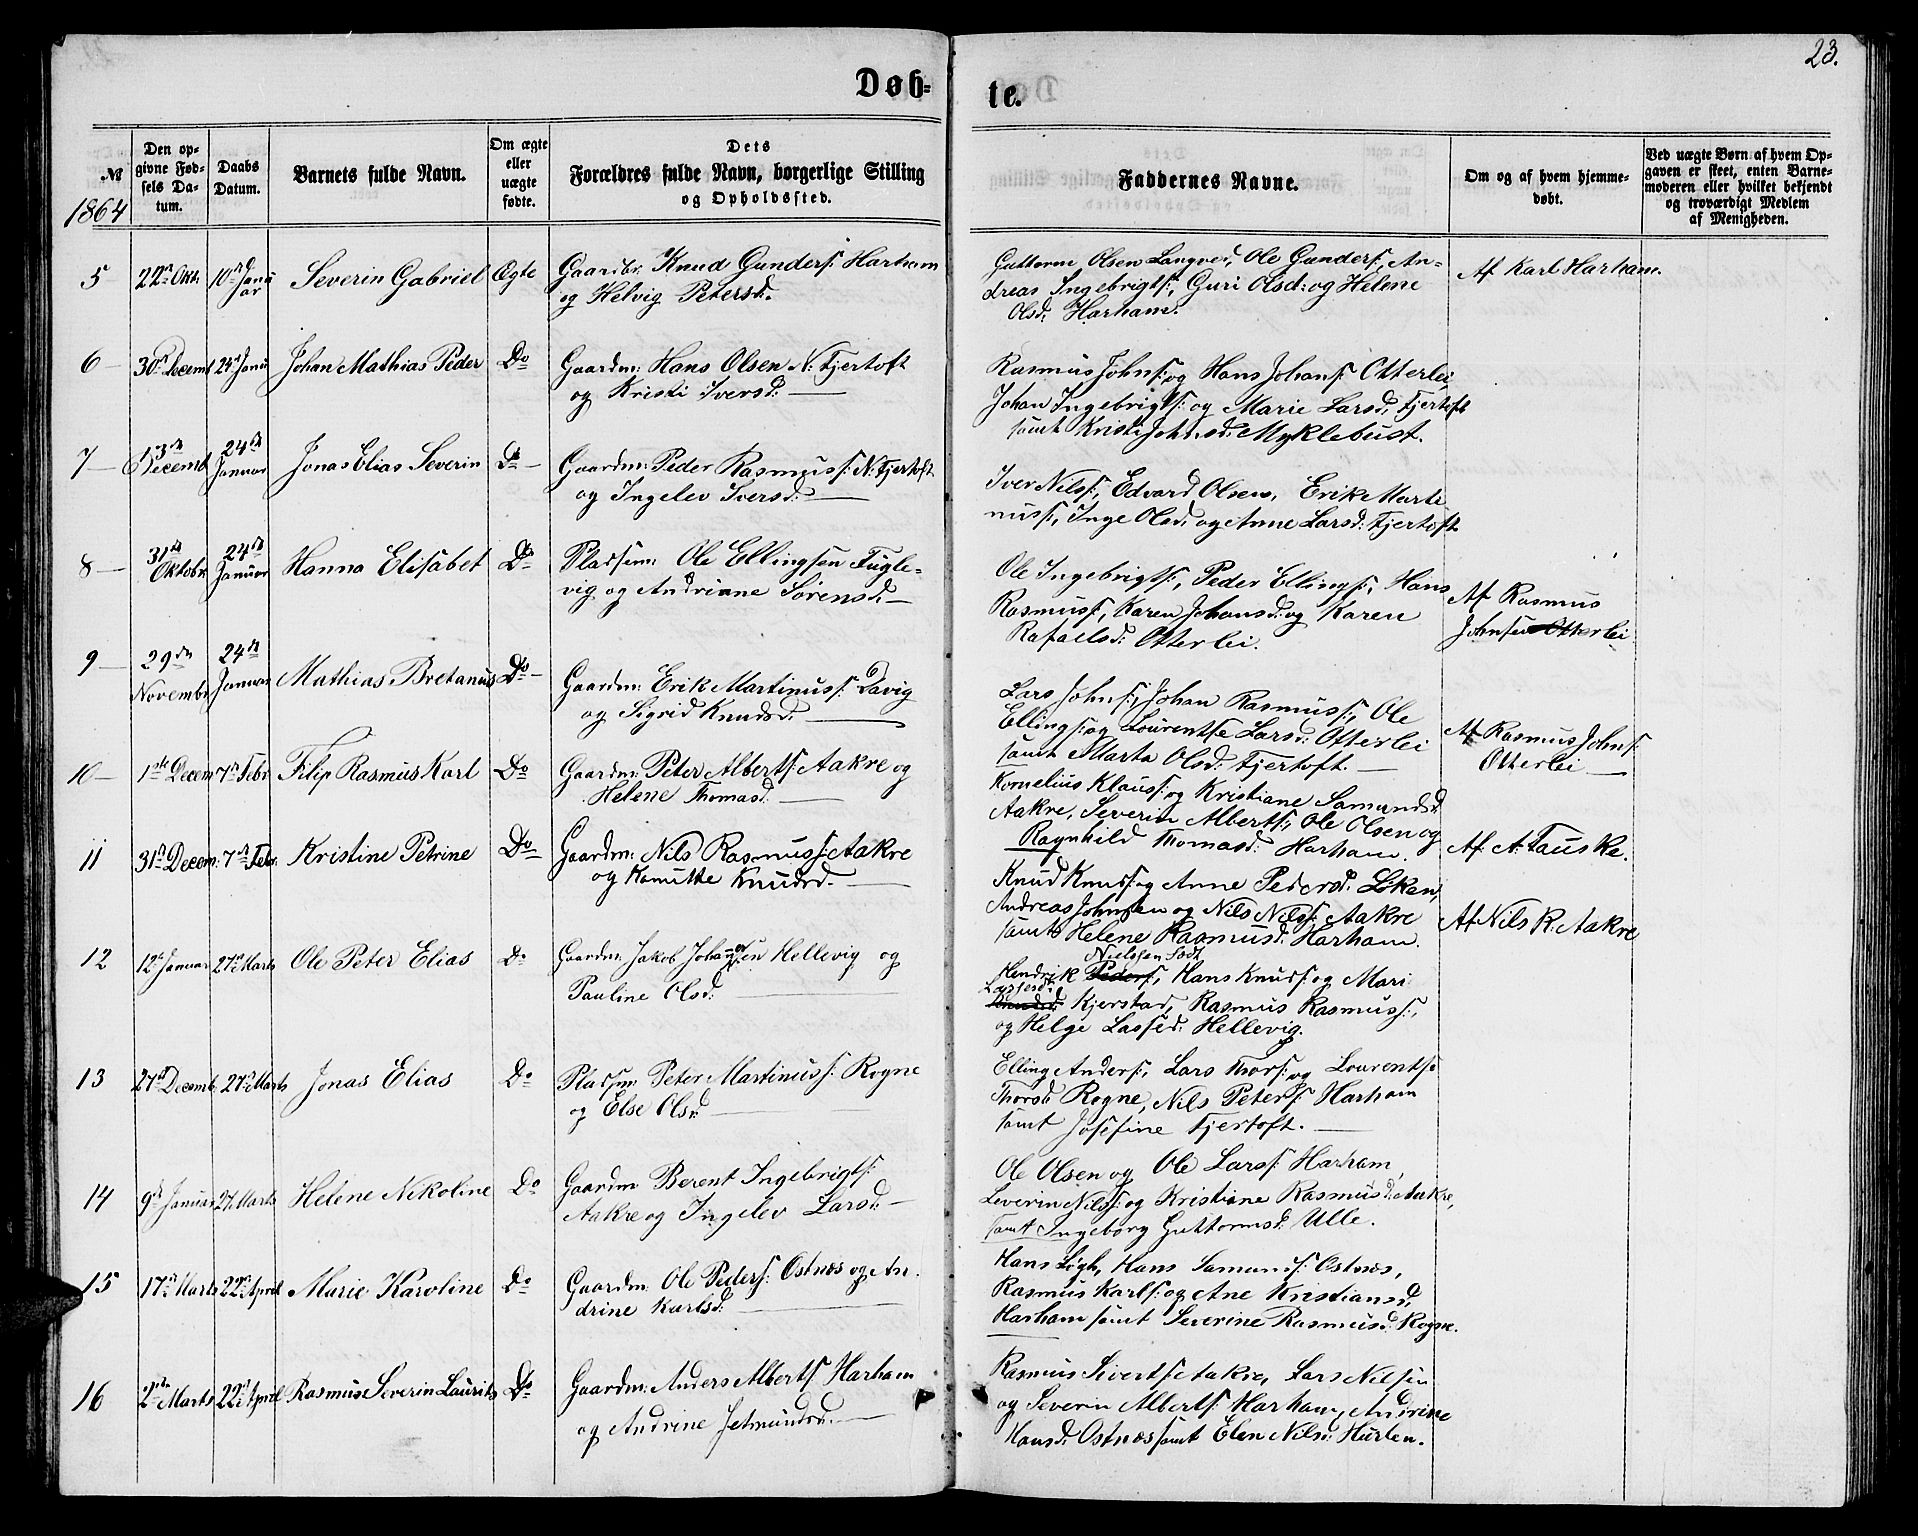 23.
Døb- te.
№
Den op-
givne Fød-
sels Da-
tum.
Daabs
Datum.
Barnets fulde Navn.
Om ægte
eller
uægte
fødte.
Dets
Forældres fulde Navn, borgerlige Stilling
og Opholdssted.
Faddernes Navne.
Om og af hvem hjemme-
døbt.
Ved uægte Børn af hvem Op-
gaven er skeet, enten Barne-
moderen eller hvilket bekjendt
og troværdigt Medlem
af Menigheden.
1864
5 22de Oktr. 10de Janu
ar
Severin Gabriel Ægte
Gaardbr. Knud Gunders: Harham
og Helvig Petersd:
Guttorm Olsen Longved, Ole Gunders:, An-
dreas Ingebrigts:, Guri Olsd: og Helene
Olsd: Harham.
Af Karl Harham.
6 30te Decemb 24de Janu Johan Mathias Peder Do
Gaardm: Hans Olsen N: Fjertoft
og Kristi Iversd:
Rasmus Johns: og Hans Johans: Otterlei,
Johan Ingebrigts: og Marie Larsd: Fjertoft
samt Kristi Johnsd: Myklebust.
7 13de
Decemb 24de
Januar Jonas Elias Severin Do
Gaardm: Peder Rasmuss: N: Fjertoft
og Ingelev Iversd:
Iver Nilss:, Edvard Olsen, Erik Marti
nuss:, Inge Olsd: og Anne Larsd: Fjertoft
8 31te
Oktobr 24de
Januar Hanna Elisabet Do
Pladsm: Ole Ellingsen Fugle-
vig og Andriane Sørensd:
Ole Ingebrigts:, Peder Ellings:, Hans
Rasmuss:, Karen Johansd: og Karen
Rafaelsd: Otterlei.
Af Rasmus
Johnsen Otterlei
9 29de
Novembr 24de
Januar Mathias Bretanus Do
Gaardm: Erik Martinuss: Davig
og Sigrid Knudsd:
Lars Johns:, Johan Rasmuss:, Ole
Ellings: og Lourentse Larsd: Otterlei
samt Marta Olsd: Fjertoft.
Af Rasmus Johns:
Otterlei
10 1ste Decem 7de Febr Filip Rasmus Karl Do
Gaardm: Peter Alberts: Aakre og
Helene Thomasd:
Kornelius Klaus: og Kristiane Samundsd
Aakre, Severin Alberts:, Ole Olsen og
Ragnhild Thomasd: Harham.
11 31te Decem: 7de Febr. Kristine Petrine Do
Gaardm: Nils Rasmuss: Aakre
og Kanutte Knudsd.
Af A. Tauske.
Knud Knuds: og Anne Pedersd: Løken,
Andreas Johnsen og Nils Nilss: Aakre
samt Helene Rasmusd: Harham.
Af Nils R. Aakre
12 12te Januar 27de Marts Ole Peter Elias Do
Gaardm: Jakob Johansen Hellevig og
Pauline Olsd:
Nielssen
Hendrik Peders:, Hans Knuds: og Mari
Lassesd:
Kjerstad, Rasmus Rasmuss:,
og Helge Lassed: Hellevig.
13 27de Decemb. 27de Marts Jonas Elias Do
Pladsm: Peter Martinuss: Rogne
og Else Olsd:
Elling Anders:, Lars Thors: og Lourentse
Thorsd Rogne, Nils Peters: Harham
samt Josefine Fjertoft.
14 9de Januar 27 Marts Helene Nikoline Do
Gaardm Berent Ingebrigts:
Aakre og Ingelev Larsd:
Ole Olsen og Ole Larss: Harham,
Severin Nilss: og Kristiane Rasmusd: Aakre,
samt Ingeborg Guttormsd: Ulle.
15 17de Marts 22de April Marie Karoline Do
Gaardm: Ole Peders: Ostnæs og An-
drine Karlsd:
Hans Løgh, Hans Samunds: Ostnæs,
Rasmus Karls: og Ane Kristiansd,
Harham samt Severine Rasmusd: Rogne.
16 2den Marts 22de April Rasmus Severin Laurits Do
Gaardm: Anders Alberts Harham
og Andrine Jetmundsd:
Rasmus Siverts: Aakre, Lars Nilsen
og Severin Alberts: Harham, Andrine
Hansd: Ostnæs samt Elen Nilsd: Hurlen.